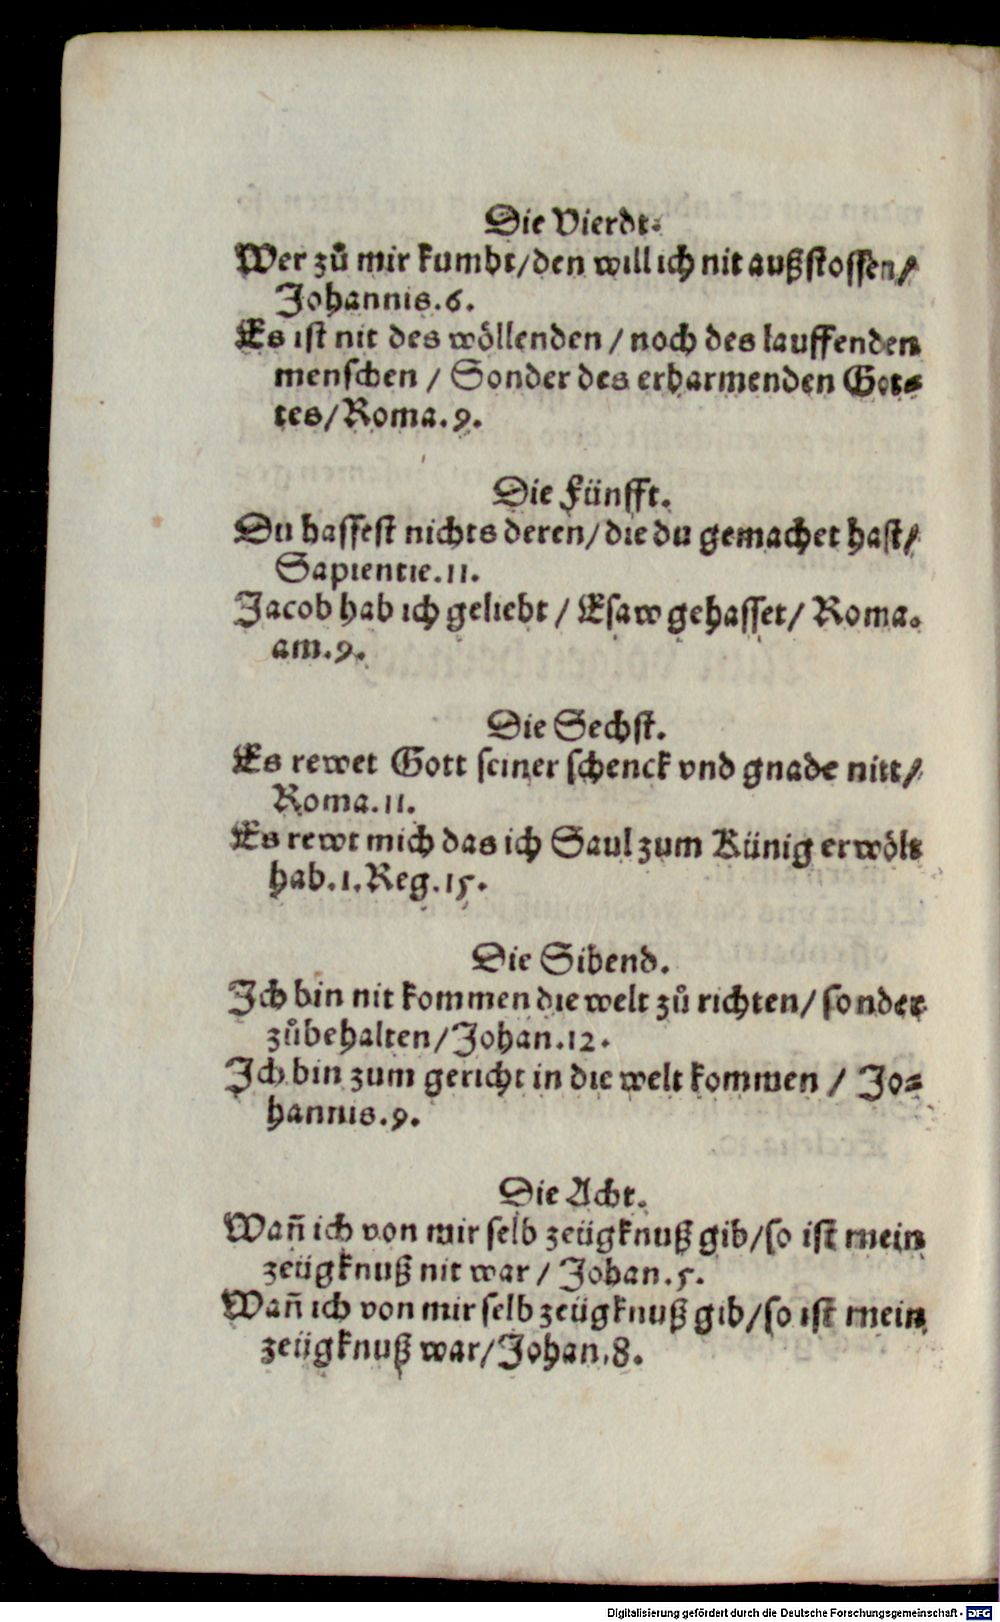 Die Vierdt.
Wer zů mir kumbt/den will ich nit außstossen/
Johannis.6.
Es ist nit des wöllenden / noch des lauffenden
menschen / Sonder des erbarmenden Got⸗
tes/Roma.9.
Die Fünfft.
Du hassest nichts deren/die du gemachet hast/
Sapientie.11.
Jacob hab ich geliebt / Esaw gehasset/ Roma.
am.9.
Die Sechst.
Es rewet Gott seiner schenck vnd gnade nitt/
Roma.11.
Es rewt mich das ich Saul zum Künig erwölt
hab.1.Reg.15.
Die Sibend.
Ich bin nit kommen die welt zů richten/ sonder
zůbehalten/Johan.12.
Ich bin zum gericht in die welt kommen / Jo⸗
hannis.9.
Die Acht.
Wañ ich von mir selb zeügknuß gib/so ist mein
zeügknuß nit war / Johan.5.
Wañ ich von mir selb zeügknuß gib/so ist mein
zeügknuß war/Johan.8.
Digitalisierung gefördert durch die Deutsche Forschungsgemeinschaft - DFG